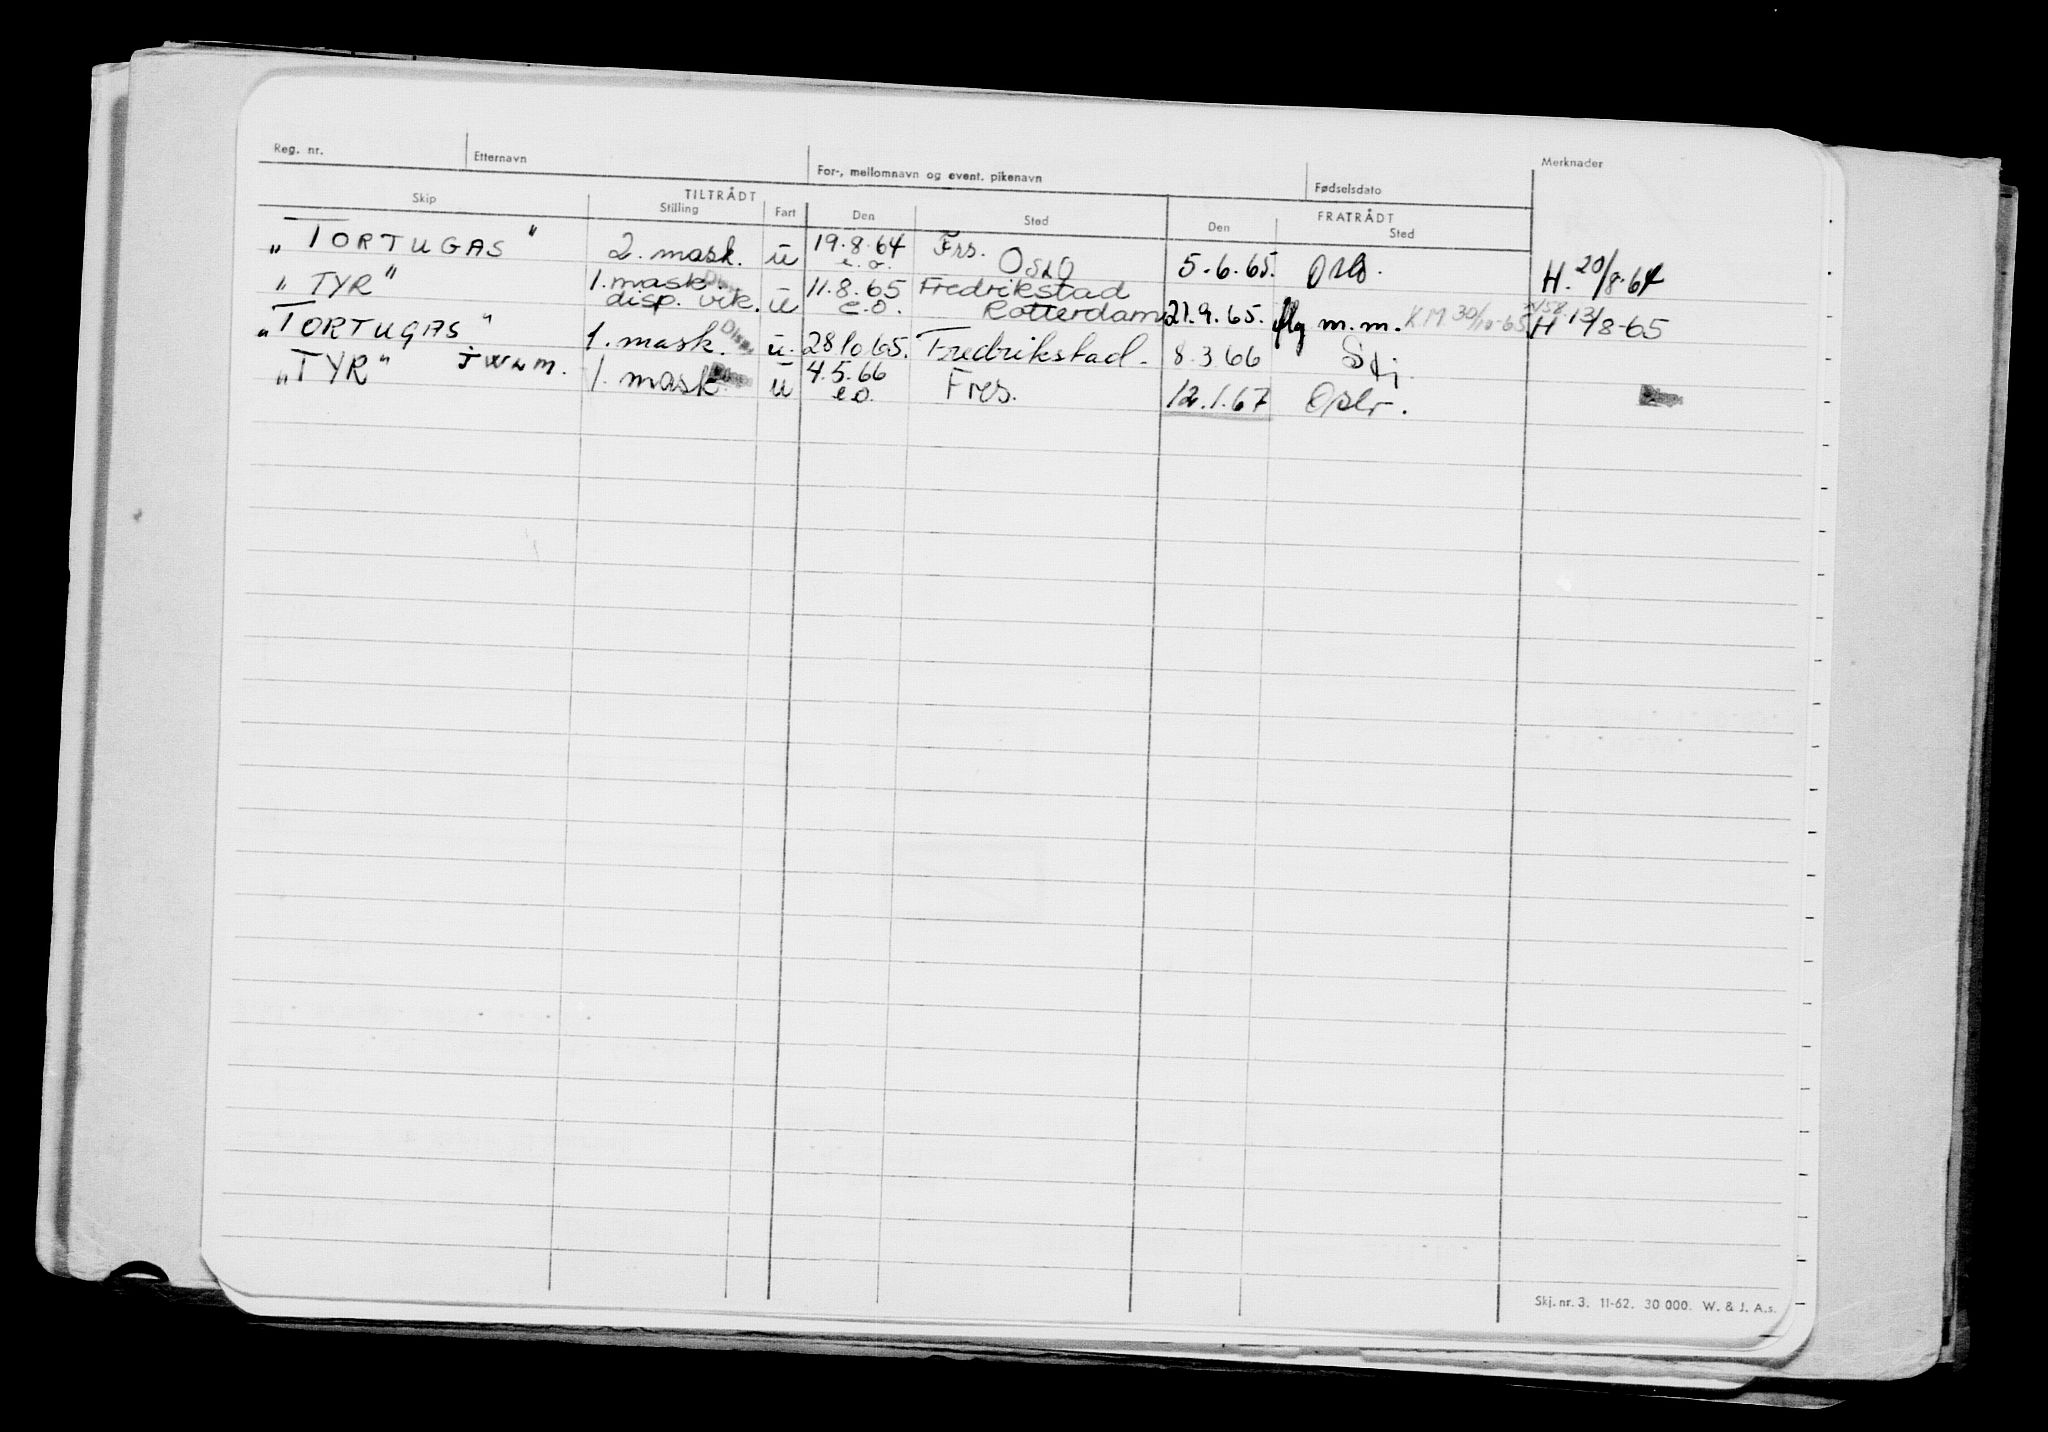 Reg. nr. Etternavn For-, mellomnavn og event. pikenavn Fødselsdato Merknader
TILTRÅDT FRATRÅDT
Skip Stilling Fart Den Sted Den Sted
"TORTUGAS" 2. mask. u 19.8.64 e.o. Frs. Oslo 5.6.65. Oslo. H. 20/8-64
"TYR" 1. mask. Disp. u 11.8.65 Fredrikstad
disp. vik. e.o. Rotterdam 21.9.65. flg m.m. KM 30/10-65 H 13/8-65
"TORTUGAS" 1. mask. Disp. u. 28 10 65. Fredrikstad. 8.3 66
"TYR" 1. mask. u 4.5.66 e.o. Fres. 12.1.67 Oslo.
Skj. nr. 3. 11-62. 30 000. W. & J. A.s.